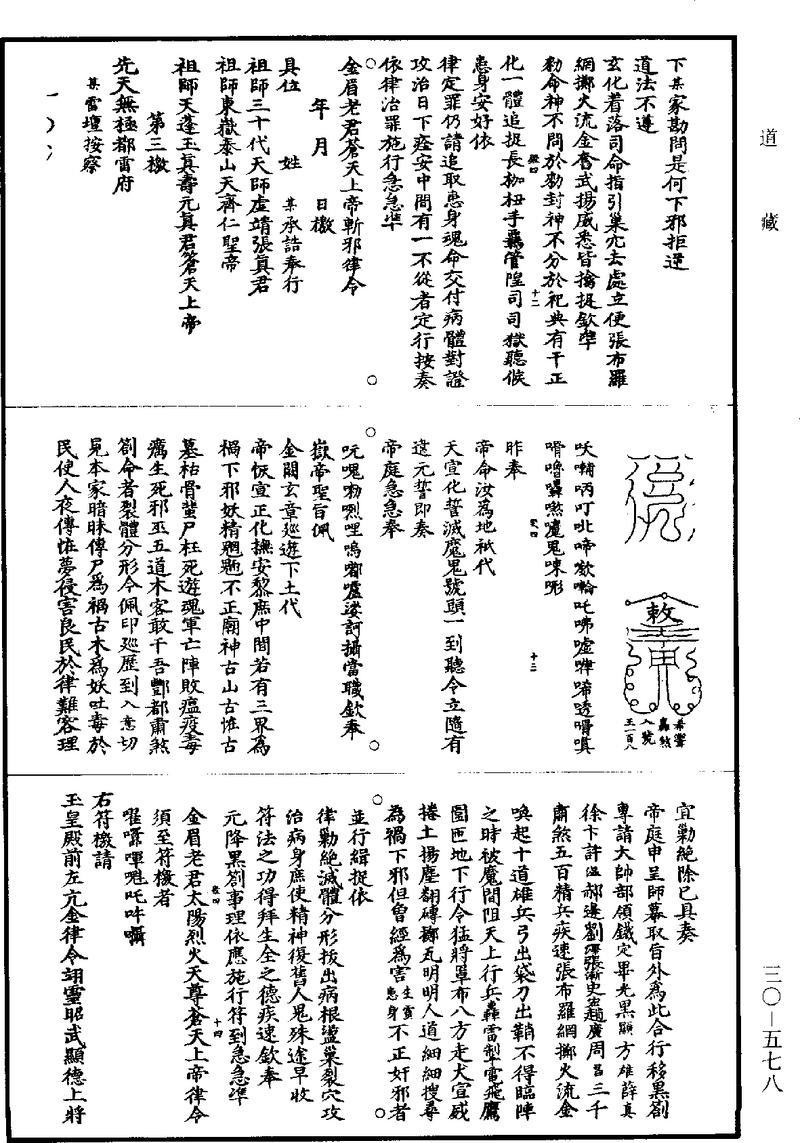 道藏
三〇—五七八
下某家勘問是何下邪拒逆
道法不遵
玄化着落司命指引巢穴去處立便張布羅
網擲火流金奮武揚威悉皆擒捉欽準
勅命神不問於勅封神不分於祀典有干正
化一體追捉長枷杻手羈管隍司司獄聽候
患身安好依
律定罪仍請追取患身魂命交付病體對證
攻治日下痊安中間有一不從者定行按奏
依律治罪施行急急準
金眉老君蒼天上帝斬邪律令
年月日檄
具位姓某承誥奉行
祖師三十代天師虛靖張真君
祖師東嶽泰山天齊仁聖帝
祖師天蓬玉真壽元真君蒼天上帝
第三檄
先天無極都雷府
某雷壇按察
勅
入號
玉一百八
昨奉
帝命汝為地祇代
天宣化誓滅魔鬼號頭一到聽令立隨有
違元誓即奏
帝庭急急奉
攝當職欽奉
嶽帝聖旨佩
金闕玄章巡遊下土代
帝恢宣正化撫安黎庶中間若有三界為
禍下邪妖精魍魎不正廟神古山古怪古
墓枯骨蜚尸枉死遊魂軍亡陣敗瘟疫毒
癘生死邪巫五道木客敢干吾酆都肅煞
劄命者裂體分形今佩印巡歷到入意切
見本家暗昧傳尸為禍古木為妖吐毒於
民使人夜傳怪夢侵害良民於律難容理
宜勦絕除已具奏
帝庭申呈師幕取旨外為此合行移黑劄
專請大帥部領鐵定畢光黑顯方雄薛真
徐卞許温郝邊劉澤張衝史孟趙廣周昌三千
肅煞五百精兵疾速張布羅網擲火流金
喚起十道雄兵弓出袋刀出鞘不得臨陣
之時被魔間阻天上行兵轟雷掣電飛鷹
圍匝地下行令猛將單布八方走犬宣威
捲土揚塵翻磚擲瓦明明人道細細搜尋
為禍下邪但曾經為害生靈患身不正奸邪者
並行緝捉依
律勦絕滅體分形拔出病根盪巢裂穴攻
治病身庶使精神復舊人鬼殊途早收
符法之功得拜生全之德疾速欽奉
元降黑劄事理依應施行符到急急準
金眉老君太陽烈火天尊蒼天上帝律令
須至符檄者
右符檄請
玉皇殿前左亢金律令翊靈昭武顯德上將